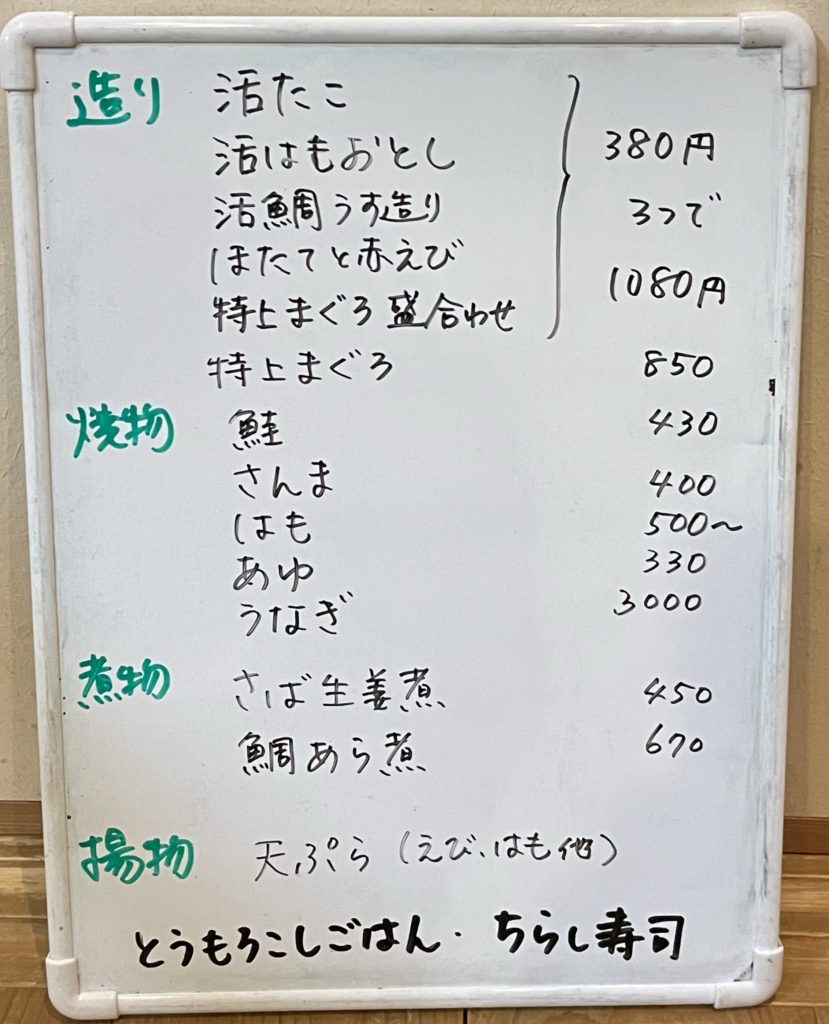 造り 活たこ
活はもおとし 380円
活鯛うす造り 3つで
ほたてと赤えび
特上まぐろ盛合わせ 1080円
特上まぐろ 850
焼物 鮭 430
さんま 400
はも 500〜
あゆ 330
うなぎ 3000
煮物 さば生姜煮 450
鯛あら煮 670
揚物 天ぷら(えび、はも他)
とうもろこしごはん・ちらし寿司